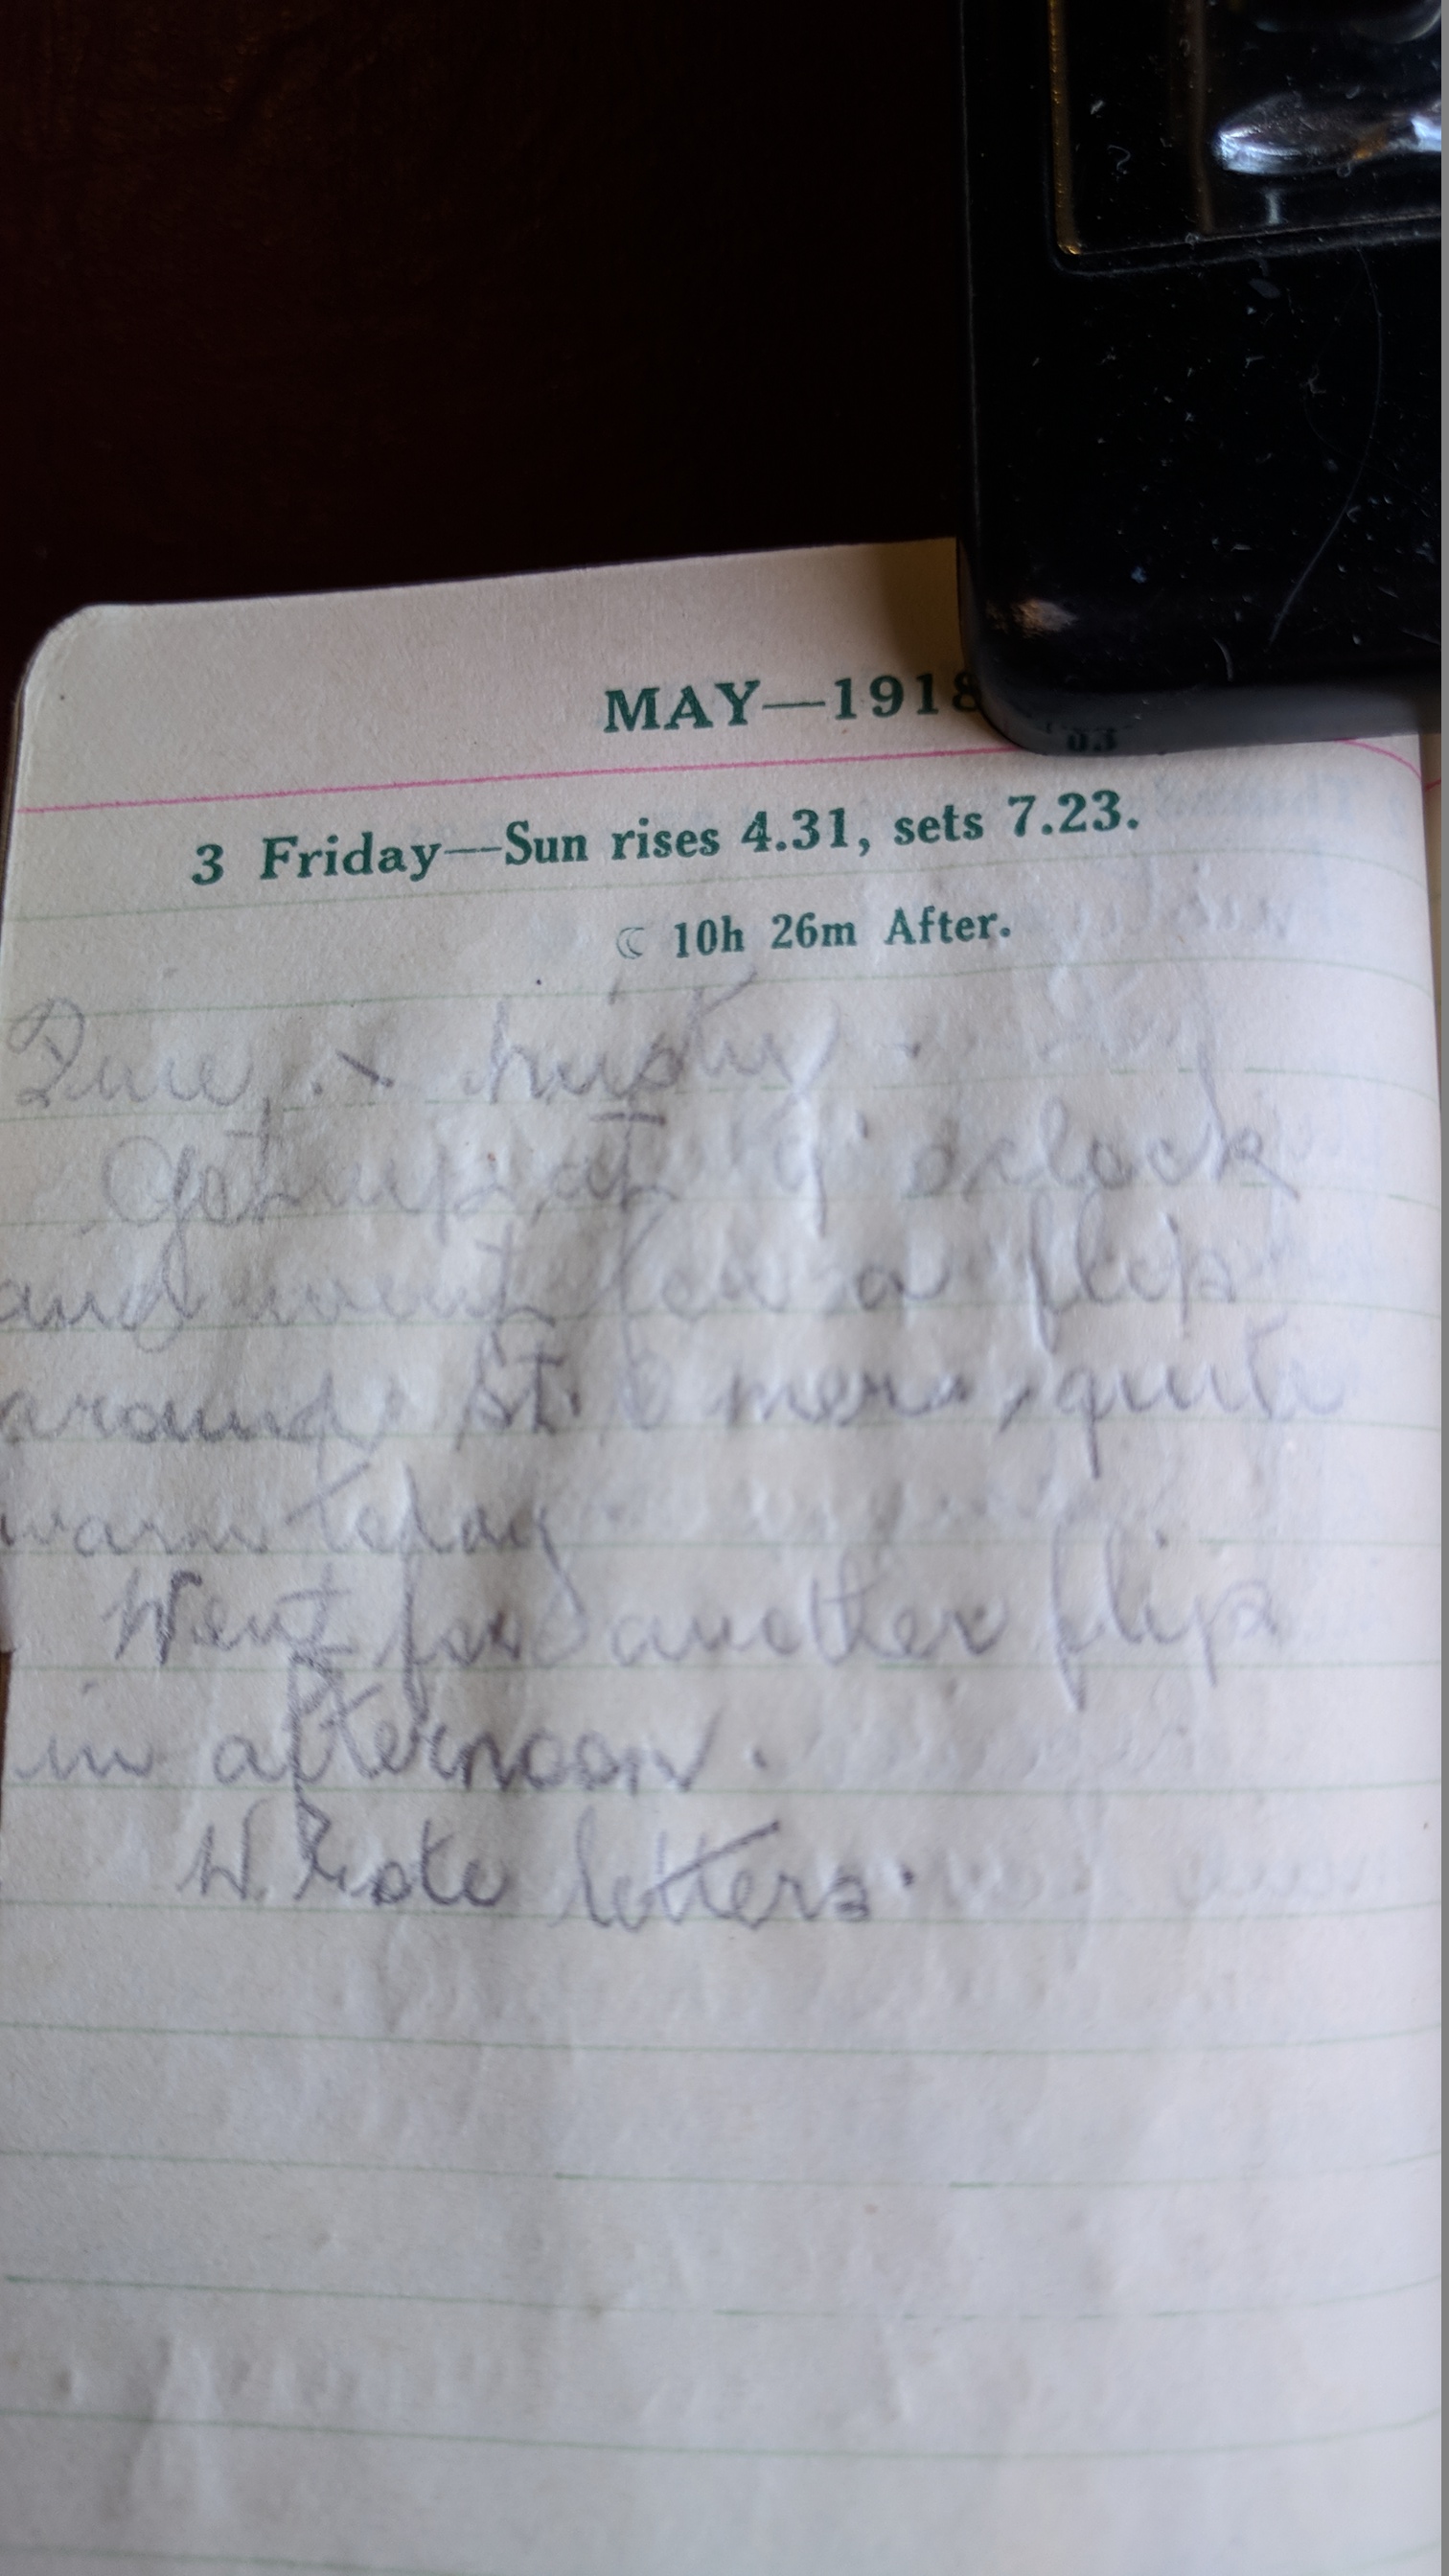 MAY—1918
3 Friday—Sun rises 4.31, sets 7.23.
☾ 10h 26m After.
Got up at 9 o'clock
and went for a flip
around St. Omer, quite
warm today
Went for another flip
in afternoon.
Wrote letters.